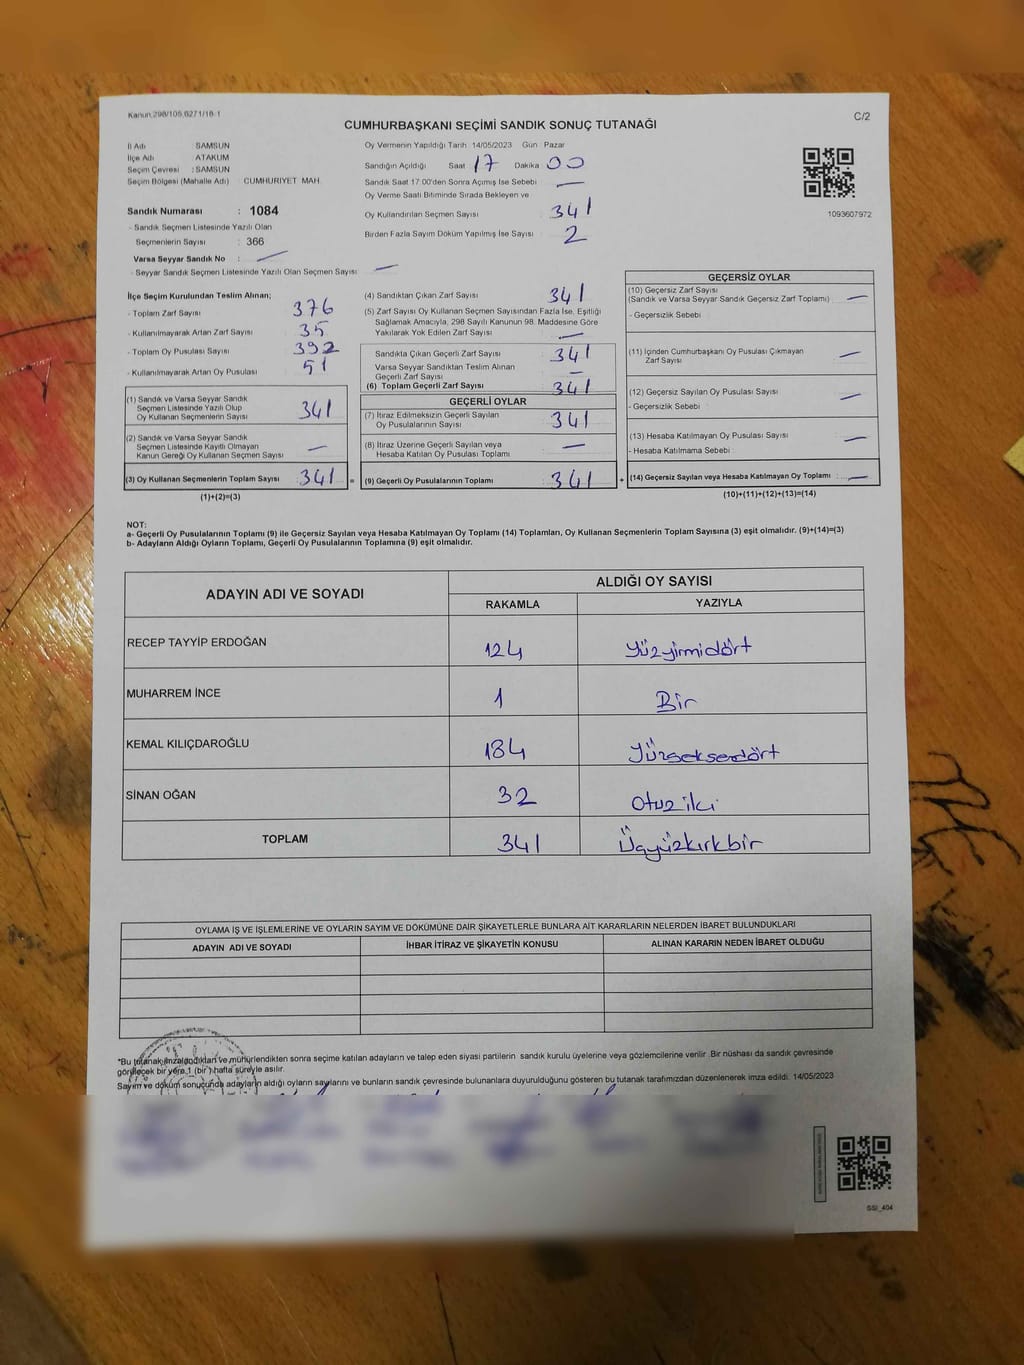 Kanun.298/105,6271/18-1
C/2
CUMHURBAŞKANI SEÇİMİ SANDIK SONUÇ TUTANAĞI
İl Adı SAMSUN
İlçe Adı ATAKUM
Seçim Çevresi : SAMSUN
Seçim Bölgesi (Mahalle Adı) CUMHURIYET MAH.
Oy Vermenin Yapıldığı Tarih 14/05/2023 Gün Pazar
Sandığın Açıldığı Saat 17 Dakika 00
Sandık Saat 17:00'den Sonra Açımış İse Sebebi —
Oy Verme Saati Bitiminde Sırada Bekleyen ve
Oy Kullandırılan Seçmen Sayısı 341
Birden Fazla Sayım Döküm Yapılmış İse Sayısı 2
1093607972
Sandık Numarası : 1084
- Sandık Seçmen Listesinde Yazılı Olan
Seçmenlerin Sayısı : 366
Varsa Seyyar Sandık No : —
- Seyyar Sandık Seçmen Listesinde Yazılı Olan Seçmen Sayısı : —
İlçe Seçim Kurulundan Teslim Alınan;
- Toplam Zarf Sayısı 376
- Kullanılmayarak Artan Zarf Sayısı 35
- Toplam Oy Pusulası Sayısı 392
- Kullanılmayarak Artan Oy Pusulası 51
(1) Sandık ve Varsa Seyyar Sandık
Seçmen Listesinde Yazılı Olup
Oy Kullanan Seçmenlerin Sayısı 341
(2) Sandık ve Varsa Seyyar Sandık
Seçmen Listesinde Kayıtlı Olmayan
Kanun Gereği Oy Kullanan Seçmen Sayısı —
(3) Oy Kullanan Seçmenlerin Toplam Sayısı 341 =
(1)+(2)=(3)
(4) Sandıktan Çıkan Zarf Sayısı 341
(5) Zarf Sayısı Oy Kullanan Seçmen Sayısından Fazla İse, Eşitliği
Sağlamak Amacıyla, 298 Sayılı Kanunun 98. Maddesine Göre
Yakılarak Yok Edilen Zarf Sayısı —
Sandıkta Çıkan Geçerli Zarf Sayısı 341
Varsa Seyyar Sandıktan Teslim Alınan
Geçerli Zarf Sayısı —
(6) Toplam Geçerli Zarf Sayısı 341
GEÇERLİ OYLAR
(7) İtiraz Edilmeksizin Geçerli Sayılan
Oy Pusulalarının Sayısı 341
(8) İtiraz Üzerine Geçerli Sayılan veya
Hesaba Katılan Oy Pusulası Toplamı —
(9) Geçerli Oy Pusulalarının Toplamı 341 +
GEÇERSİZ OYLAR
(10) Geçersiz Zarf Sayısı
(Sandık ve Varsa Seyyar Sandık Geçersiz Zarf Toplamı) —
- Geçersizlik Sebebi :
(11) İçinden Cumhurbaşkanı Oy Pusulası Çıkmayan
Zarf Sayısı —
(12) Geçersiz Sayılan Oy Pusulası Sayısı —
- Geçersizlik Sebebi :
(13) Hesaba Katılmayan Oy Pusulası Sayısı —
- Hesaba Katılmama Sebebi :
(14) Geçersiz Sayılan veya Hesaba Katılmayan Oy Toplamı : —
(10)+(11)+(12)+(13)=(14)
NOT:
a- Geçerli Oy Pusulalarının Toplamı (9) ile Geçersiz Sayılan veya Hesaba Katılmayan Oy Toplamı (14) Toplamları, Oy Kullanan Seçmenlerin Toplam Sayısına (3) eşit olmalıdır. (9)+(14)=(3)
b- Adayların Aldığı Oyların Toplamı, Geçerli Oy Pusulalarının Toplamına (9) eşit olmalıdır.
ADAYIN ADI VE SOYADI ALDIĞI OY SAYISI
RAKAMLA YAZIYLA
RECEP TAYYİP ERDOĞAN 124 Yüzyirmidört
MUHARREM İNCE 1 Bir
KEMAL KILIÇDAROĞLU 184 Yüzseksendört
SİNAN OĞAN 32 Otuz iki
TOPLAM 341 Üçyüzkırkbir
OYLAMA İŞ VE İŞLEMLERİNE VE OYLARIN SAYIM VE DÖKÜMÜNE DAİR ŞİKAYETLERLE BUNLARA AİT KARARLARIN NELERDEN İBARET BULUNDUKLARI
ADAYIN ADI VE SOYADI İHBAR İTİRAZ VE ŞİKAYETİN KONUSU ALINAN KARARIN NEDEN İBARET OLDUĞU
*Bu tutanak imzalandıktan ve mühürlendikten sonra seçime katılan adayların ve talep eden siyasi partilerin sandık kurulu üyelerine veya gözlemcilerine verilir. Bir nüshası da sandık çevresinde
görülecek bir yere 1 (bir) hafta süreyle asılır.
Sayım ve döküm sonucunda adayların aldığı oyların sayılarını ve bunların sandık çevresinde bulunanlara duyurulduğunu gösteren bu tutanak tarafımızdan düzenlenerek imza edildi. 14/05/2023
SSI_404